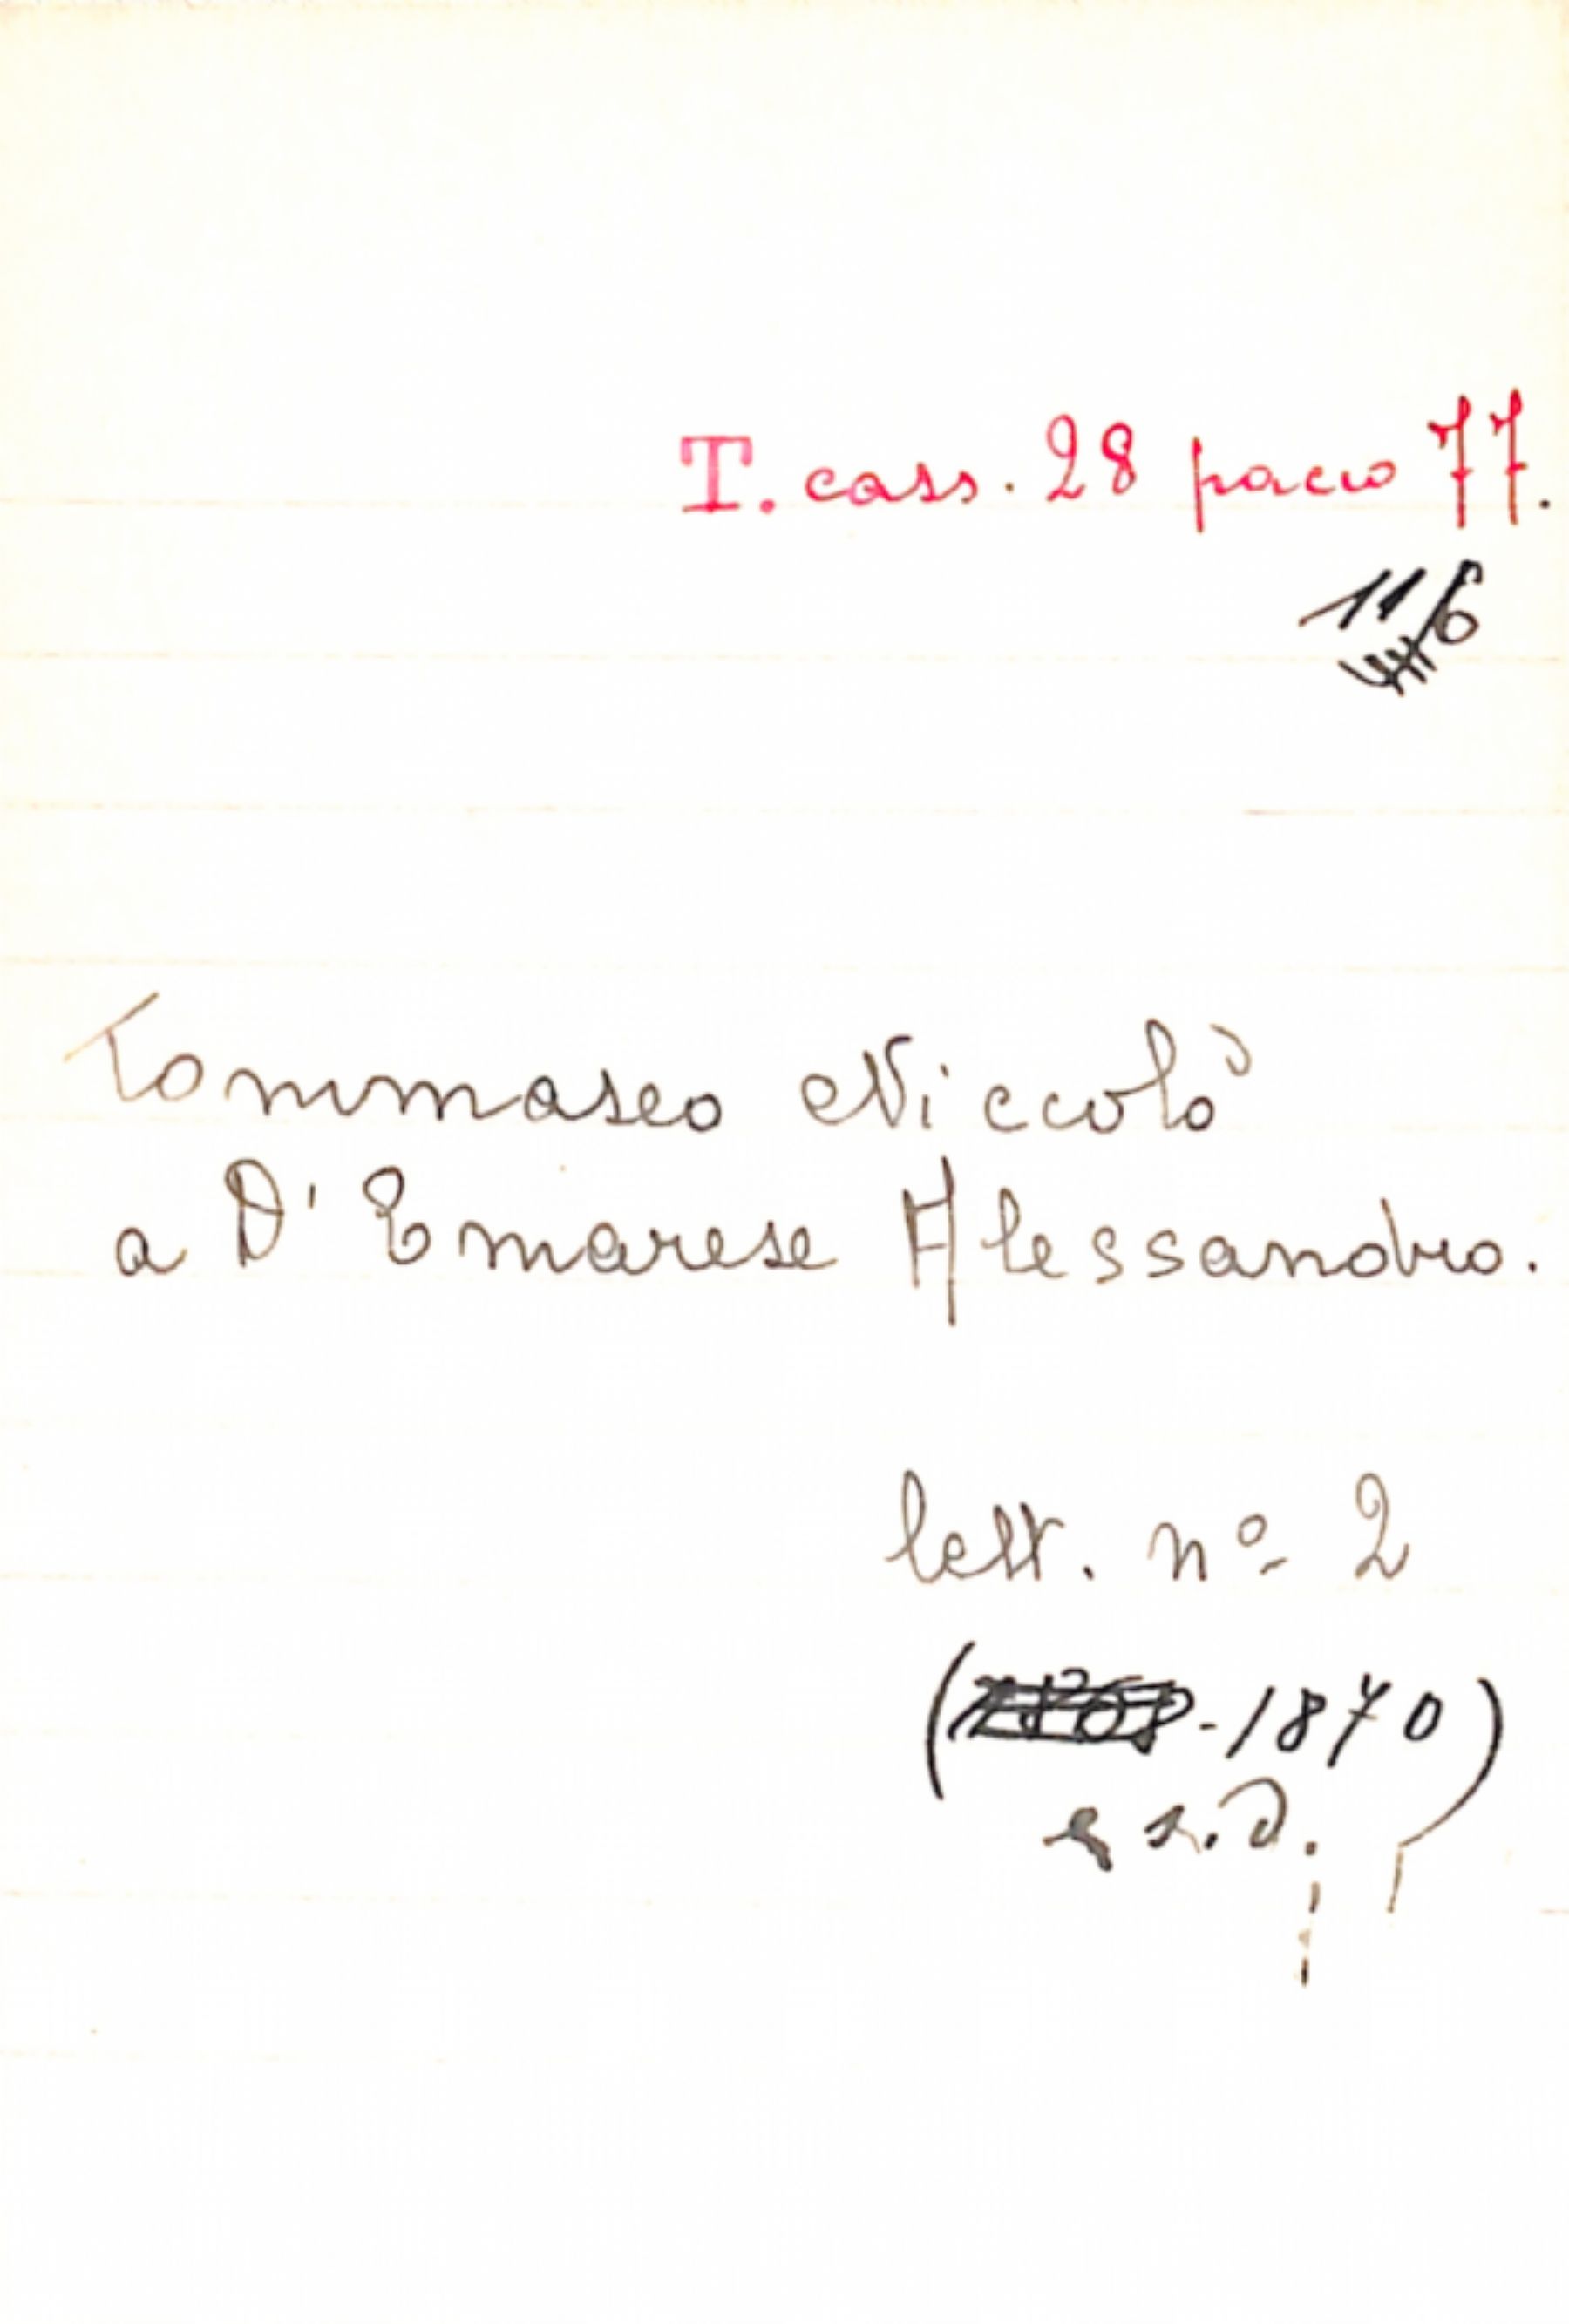 T. cass. 28 pacco 77.
11/6
Tommaseo Niccolò
a D'Emarese Alessandro.
lett. nº 2
( -1870)
e s.d.